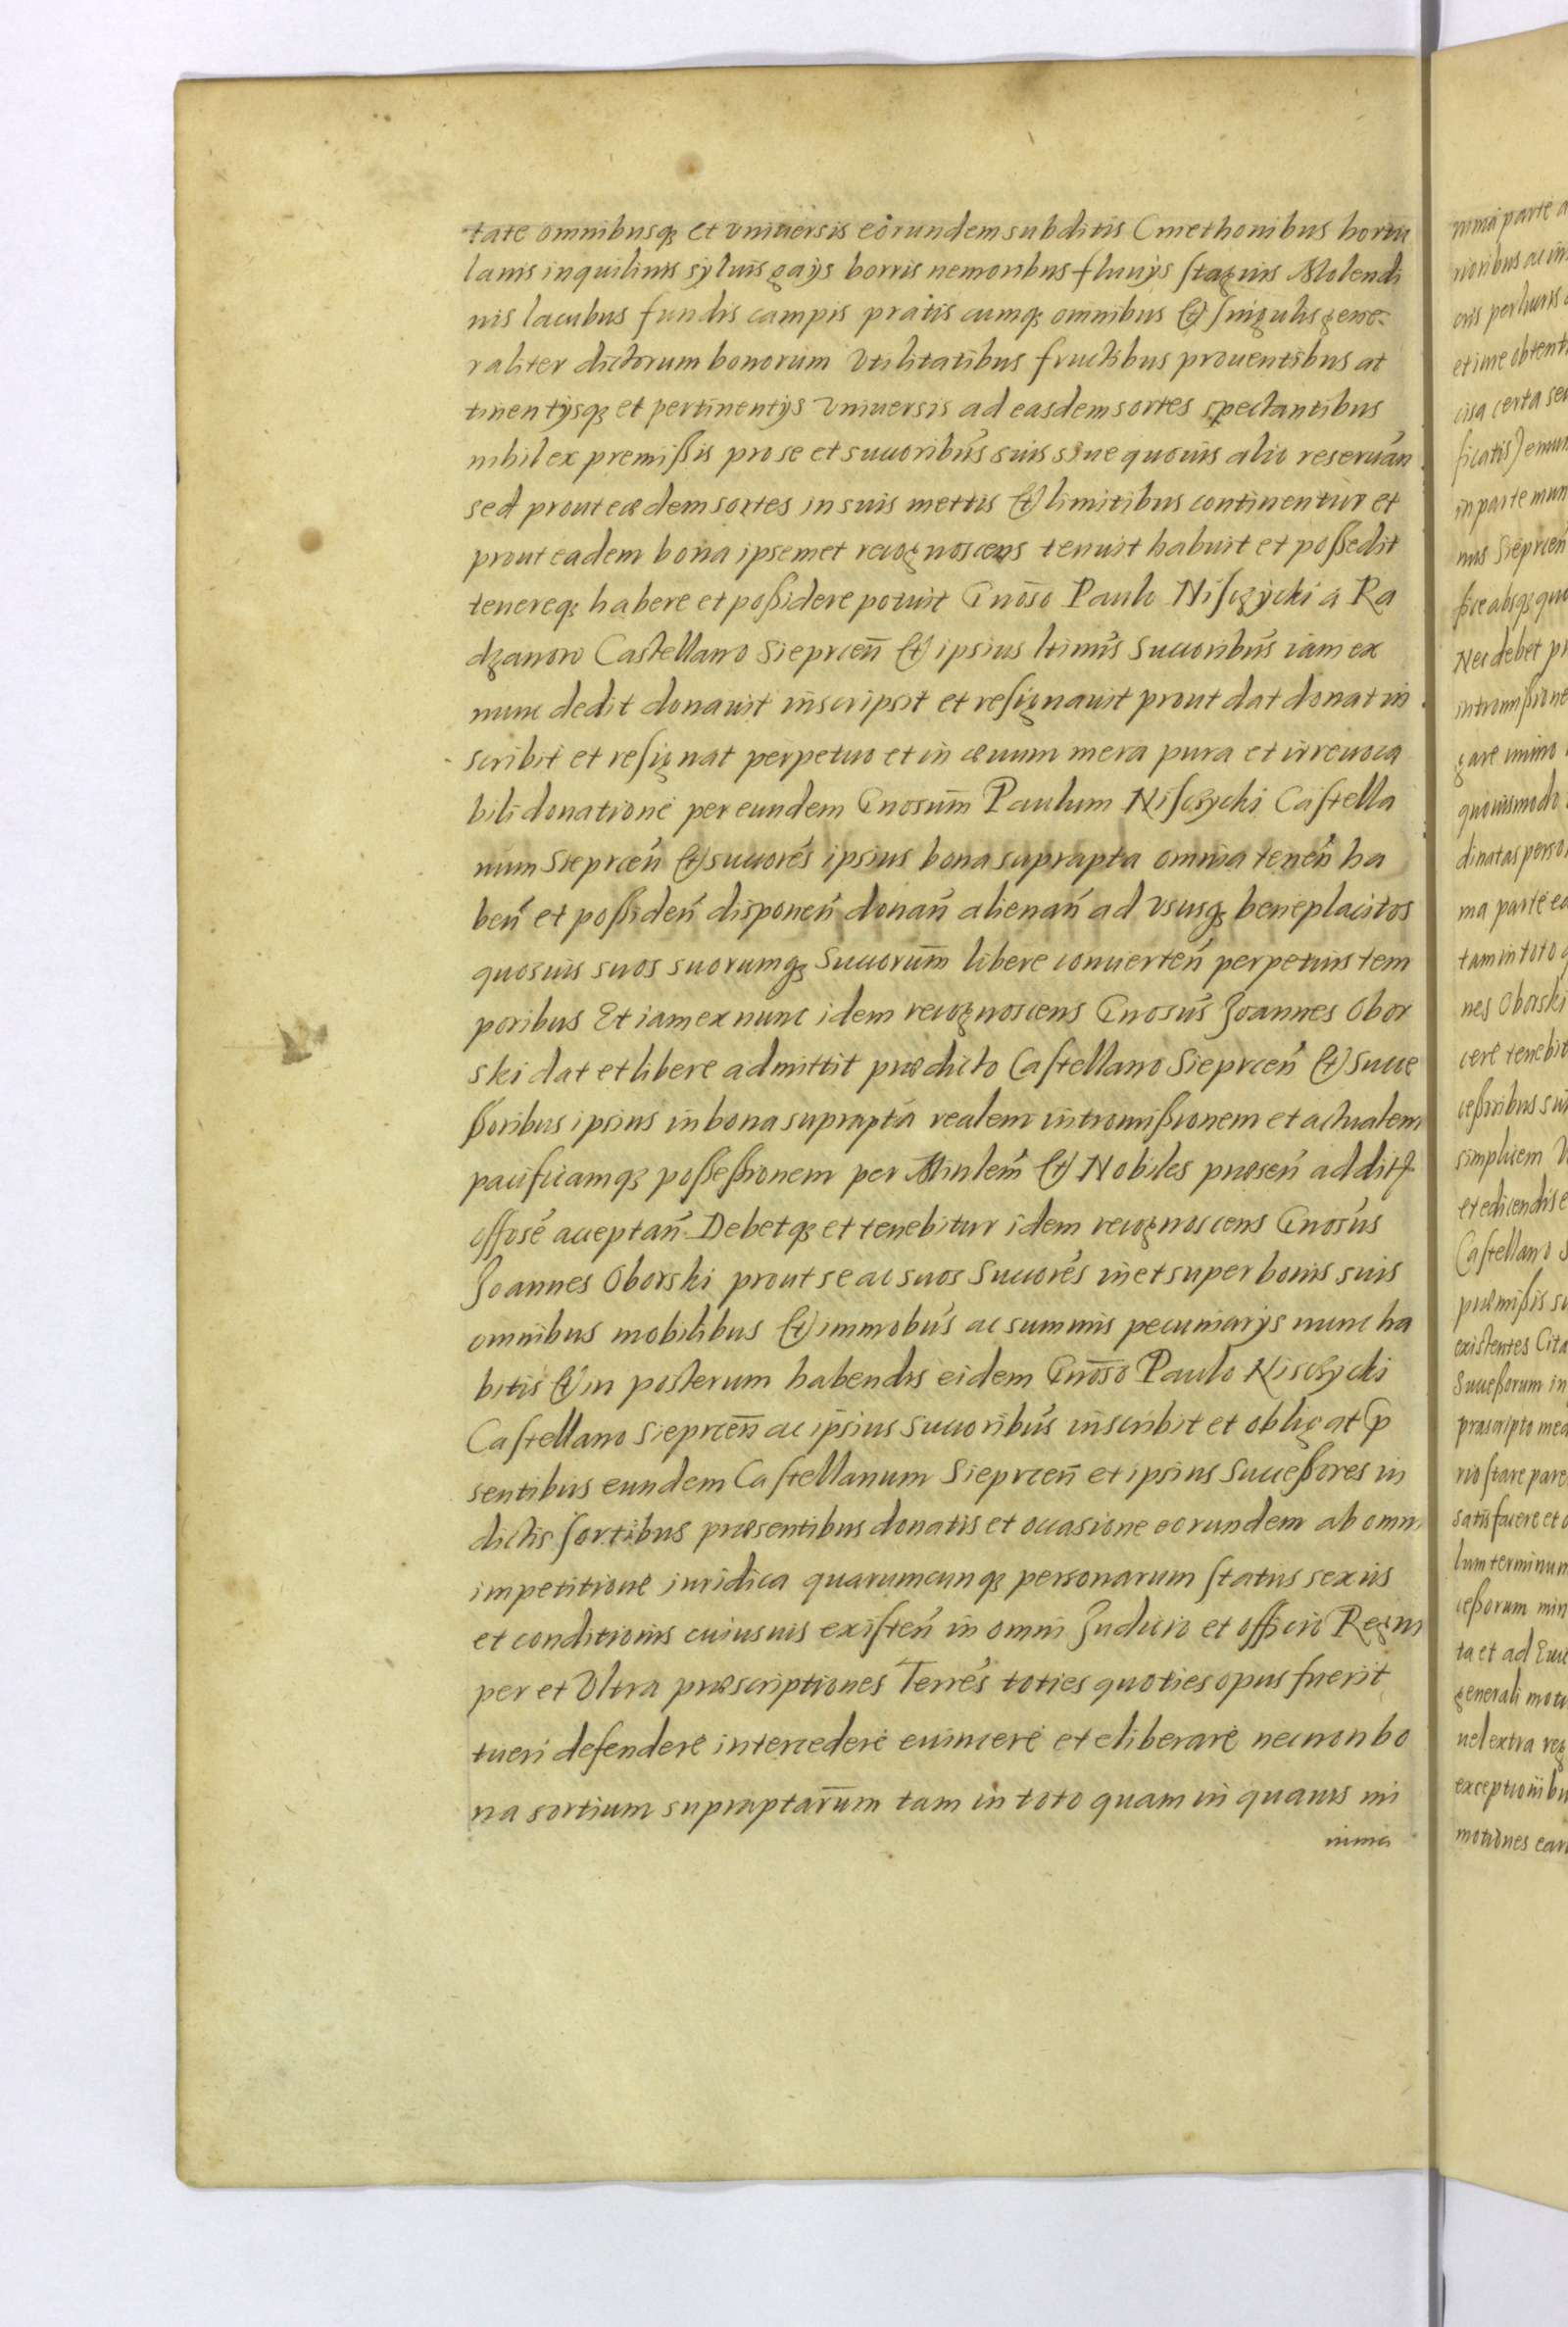 tate omnibusq₃ et vniuersis eorundem subditis Cmethonibus hortu
lanis inquilinis syluis gays borris nemoribus fluuys stagnis Molendi
nis lacubus fundis campis pratis cumq₃ omnibus et singulis gene-
raliter dictorum bonorum vtilitatibus fructibus prouentibus at
tinentysq₃ et pertinentys vniuersis ad easdem sortes spectantibus
nihil ex premißis pro se et succoribus suis sine quouis alio reseruan̄
sed prout eædem sortes in suis mettis et limitibus continentur et
prout eadem bona ipsemet recognoscens tenuit habuit et poßedit
tenereq₃ habere et poßidere potuit Gnōso Paulo Nisczycki a Ra
dzanow Castellano Sieprcen̄ et ipsius ltimis succoribus iam ex
nunc dedit donauit inscripsit et resignauit prout dat donat in
scribit et resignat perpetuo et in æuum mera pura et irreuoca
bili donatione per eundem Gnosum̄ Paulum Nisczycki Castella
num Sieprcen̄ et succores ipsius bona suprapta omnia tenen̄ ha
ben̄ et poßiden̄ disponen̄ donan̄ alienan̄ ad vsusq₃ beneplacitos
quosuis suos suorumq₃ Succorum̄ libere conuerten̄ perpetuis tem
poribus Et iam ex nunc idem recognoscens Gnosus Joannes Obor
ski dat et libere admittit prædicto Castellano Sieprcen̄ et Succe
ßoribus ipsius in bona suprapta realem intromißionem et actualem
pacificamq₃ poßeßionem per Minlem̄ et Nobiles præsen̄ addit
offose acceptan̄ Debetq₃ et tenebitur idem recognoscens Gnosus
Joannes Oborski prout se ac suos Succores in et super bonis suis
omnibus mobilibus et immobus ac summis pecuniarys nunc ha
bitis et in posterum habendis eidem Gnōso Paulo Nisczycki
Castellano Sieprcen̄ ac ipsius Succoribus inscribit et obligat p̄
sentibus eundem Castellanum Sieprcen̄ et ipsius Succeßores in
dictis sortibus præsentibus donatis et occasione eorundem ab omni
impetitione iuridica quarumcunq₃ personarum status sexus
et conditionis cuiusuis existen̄ in omni Judicio et officio Regni
per et vltra præscriptiones Terres toties quoties opus fuerit
tueri defendere intercedere euincere et eliberare necnon bo
na sortium supraptarum̄ tam in toto quam in quauis mi
nima
nima parte a
rioribus ac in
oris per
et ime obtent
cisa certa seu
ficatis
in parte mun
nus Sieprcen̄
ßice absq₃ quo
Nec debet pr
intromißione
gare immo
quouismodo
dinatas perso
ma parte ea
tam in toto q
nes Oborski
cere tenebit
ceßoribus sui
simplicem
et edicendis e
Castellano S
præmißis su
existentes Cita
Succeßorum in
præscripto
rio stare pare
satisfacere et
lum terminum
ceßorum min
ta et ad Euic
generali motu
uel extra reg
exceptionibu
motiones